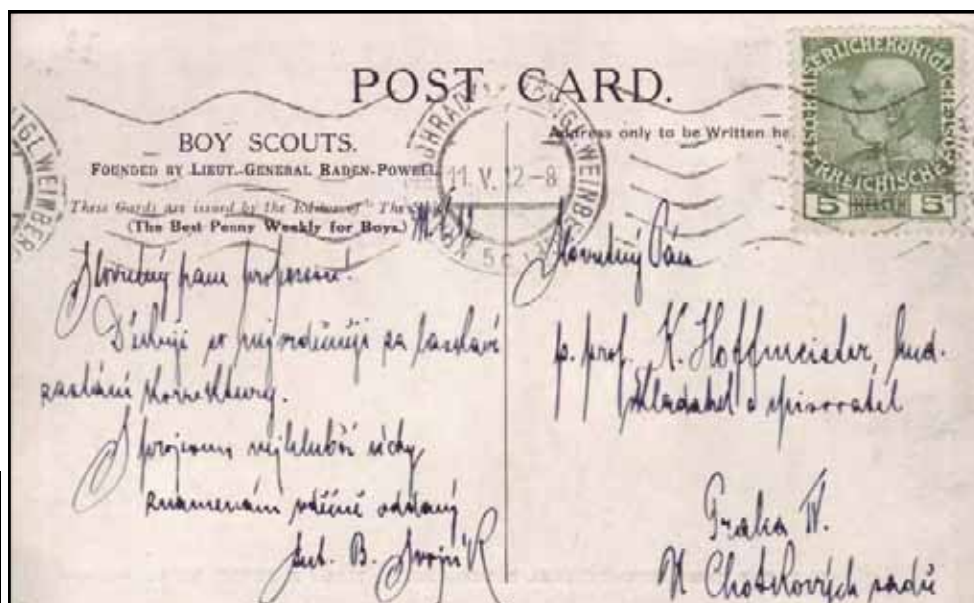 POST CARD.
BOY SCOUTS.
FOUNDED BY LIEUT.-GENERAL BADEN-POWELL
Address only to be Written he
These Cards are issued by the Editor of "The
(The Best Penny Weekly for Boys.)
11. V. 12-8
IGL. WEINBER
KÖNIGL. WEINBE
KAIS
KÖNIGL
ÖSTERREICHISCHE
5 HELLER 5
Slovutný pane profesore!
Děkuji co nejvděčněji za laskavé
zaslání korrektury.
S projevem nejhlubší úcty
znamenám vděčně oddaný
Ant. B. Svojsík
Slovutný Pán
p. prof. K. Hoffmeister, hud.
skladatel a spisovatel
Praha IV.
U Chotkových sadů